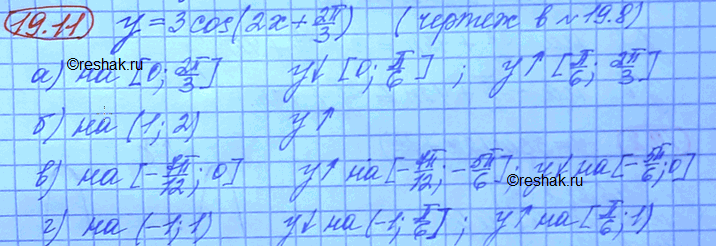 19.11 y = 3cos(2x + 2π/3) (чертеж в №19.8)
©reshak.ru
а) на [0; 2π/3] y↓ [0; π/6] ; y↑ [π/6; 2π/3]
б) на (1; 2) y↑
в) на [-7π/12; 0] y↑ на [-7π/12; -5π/6]; y↓ на [-5π/6; 0]
г) на (-1; 1) y↓ на (-1; π/6]; y↑ на [π/6; 1)
©reshak.ru